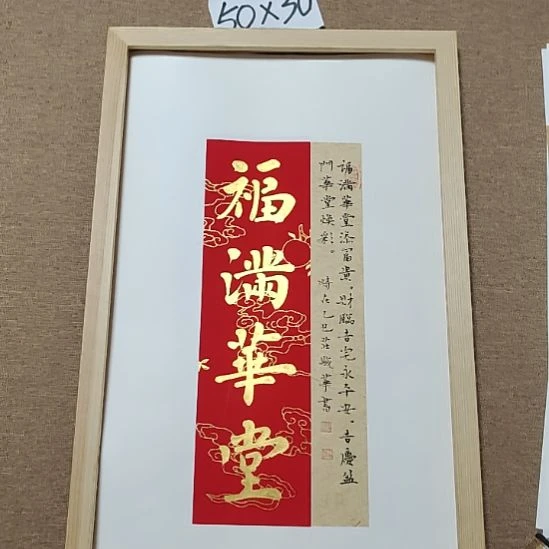 50×30
福滿華堂
福滿華堂添富貴。財臨吉宅永平安。吉慶盈
門華堂煥彩。時在乙巳
華書